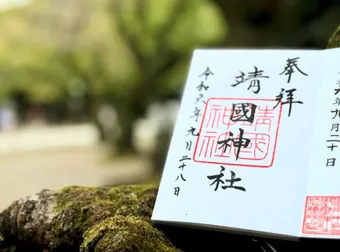 奉拝
靖國神社
令和六年九月二十八日
靖國
神社
年九月二十日